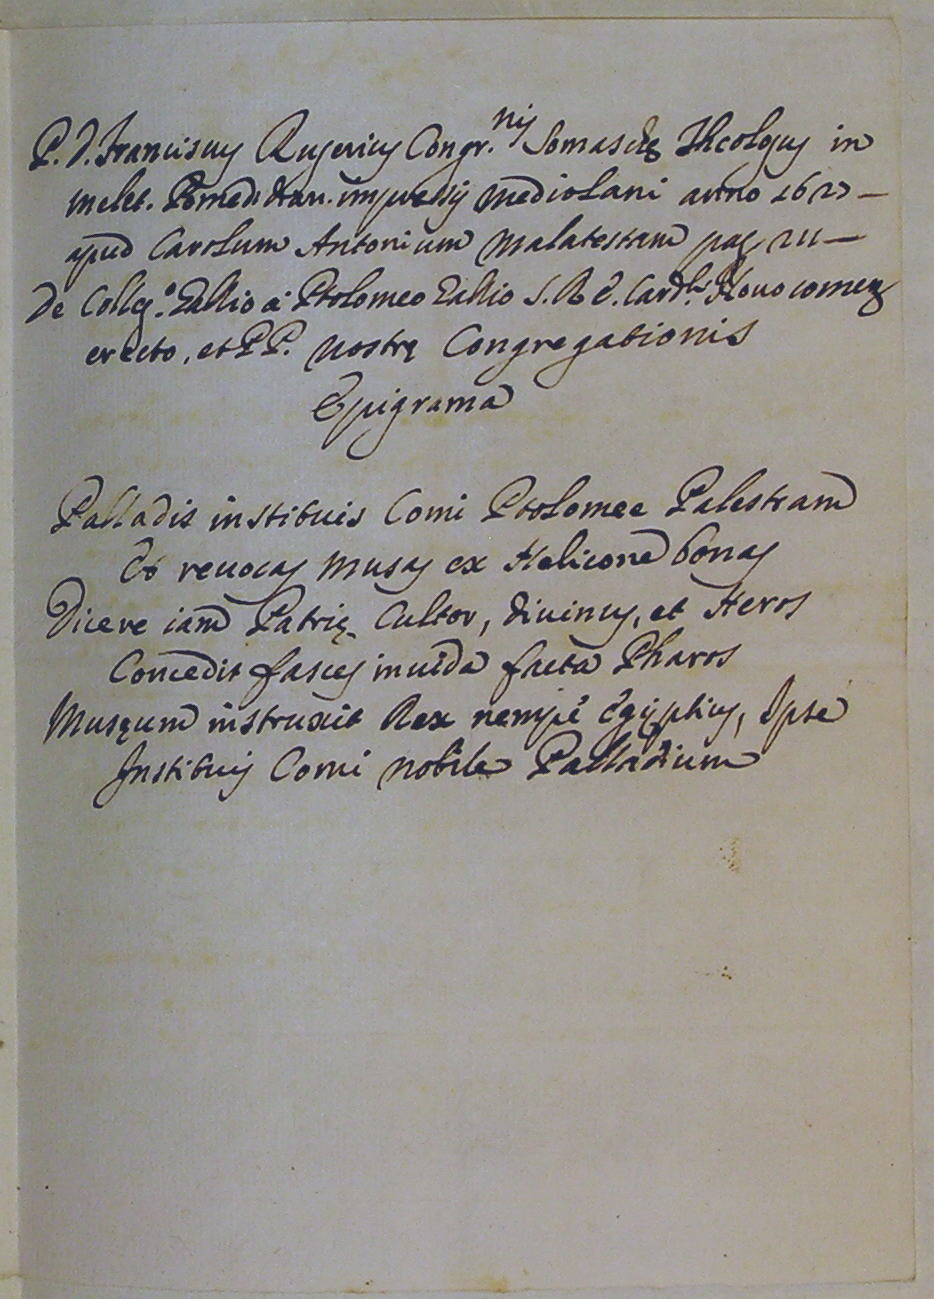 P. D. Franciscus Rugerius Congr.nis Somaschę Theologus in
melet. impressis Mediolani anno 162
apud Carolum Antonium Malatestam pag.
De Colleg.º Gallio à Ptolomeo Gallio S. R. E. Card.li Novocomen
erecto, et PP. nostrę Congregationis
Epigrama
Palladis instituis Comi Ptolomee Palestram
Et revocas Musas ex Helicone bonas
Dicere iam Patrię Cultor, divinus, et Heros
Concedit fasces invida facta Pharos
Musęum instruxit Rex nempè Egyptius, Ipse
Instituis Comi nobile Palladium